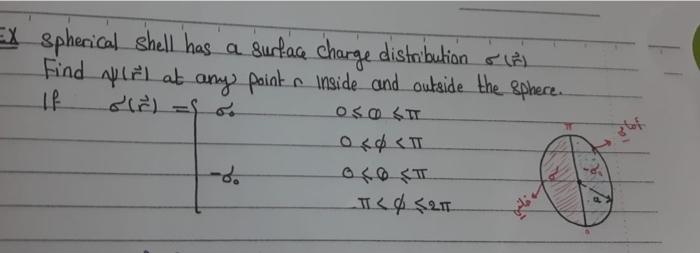 EX Spherical shell has a surface charge distribution σ(r⃗)
Find ψ(r⃗) at any point r inside and outside the sphere.
If σ(r⃗) = { σ₀ 0 ≤ θ ≤ π
0 ≤ φ < π
-σ₀ 0 ≤ θ ≤ π
π < φ ≤ 2π
π
σ
-σ₀
a
0